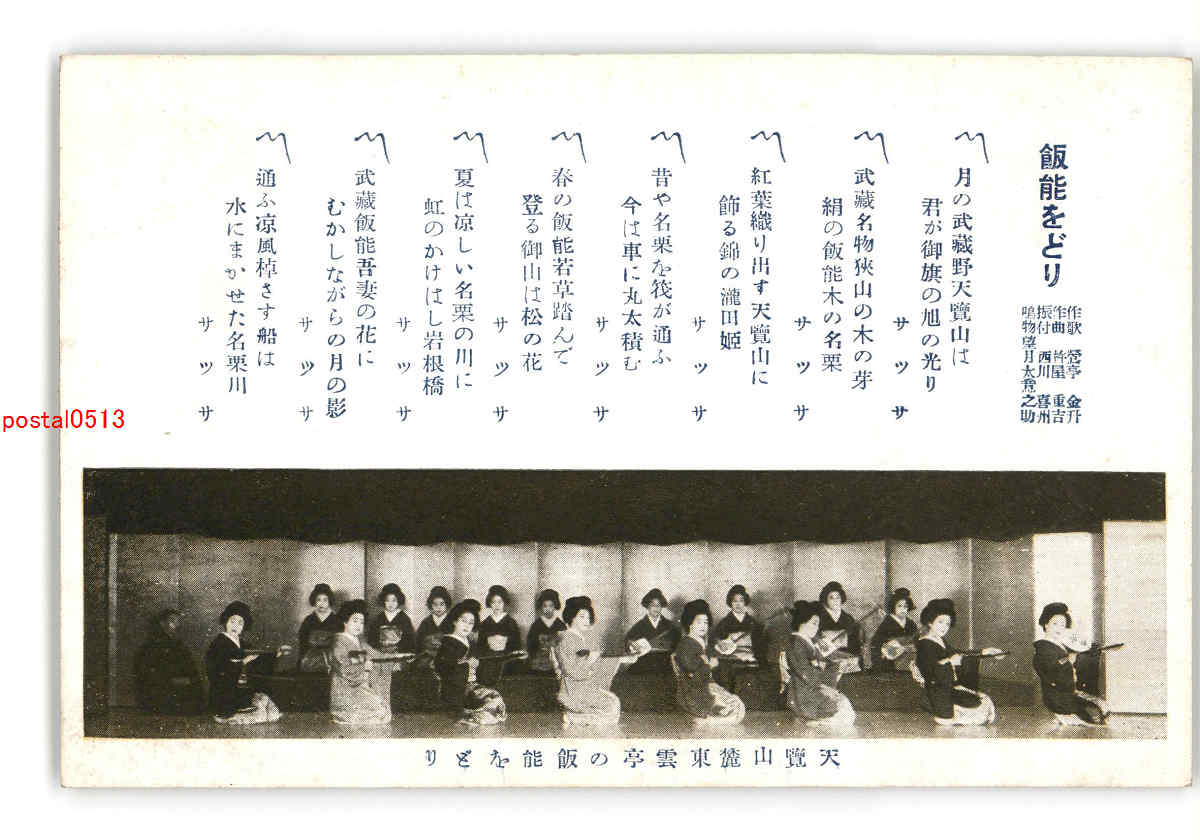 飯能をどり
作歌 鶯亭 金升
作曲 杵屋 重吉
振付 西川 喜州
鳴物 望月太意之助
〽月の武藏野天覽山は
君が御旗の旭の光り
サッサ
〽武藏名物狹山の木の芽
絹の飯能木の名栗
サッサ
〽紅葉織り出す天覽山に
飾る錦の瀧田姬
サッサ
〽昔や名栗を筏が通ふ
今は車に丸太積む
サッサ
〽春の飯能若草踏んで
登る御山は松の花
サッサ
〽夏は凉しい名栗の川に
虹のかけはし岩根橋
サッサ
〽武藏飯能吾妻の花に
むかしながらの月の影
サッサ
〽通ふ凉風棹さす船は
水にまかせた名栗川
サッサ
postal0513
天覽山麓東雲亭の飯能をどり